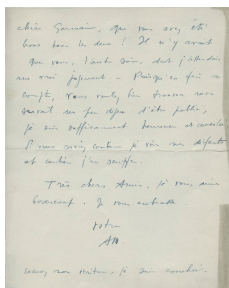 chère Germaine, que vous avez été
bons tous les deux ! Il n'y avait
que vous, l'autre soir, dont j'attendais
un vrai jugement. Puisqu'en fin de
compte, vous voulez bien trouver mon
travail un peu digne d'être publié,
je suis suffisamment heureux et
Si vous aviez je vois ses défauts
et combien j'en souffre.
Très chers Amis, je vous aime
beaucoup. Je vous embrasse
votre
AM.
je suis couché.